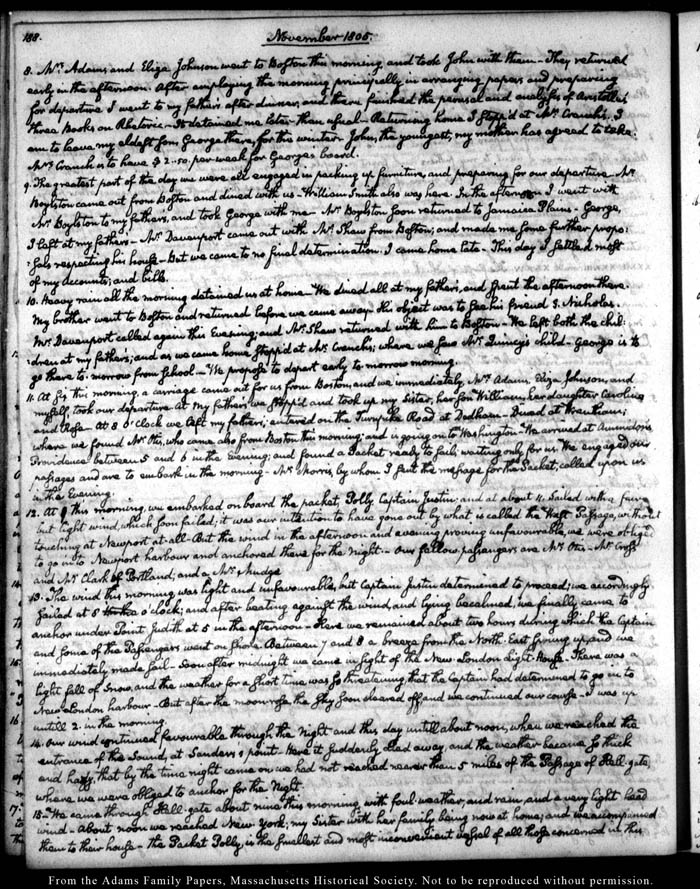 188.
November 1805.
8. Mrs. Adams and Eliza Johnson went to Boston this morning, and took John with them - They returned
early in the afternoon. After employing the morning principally in arranging papers and preparing
for departure I went to my father's after dinner; and there finished the perusal and analysis of Aristotle's
three Books on Rhetoric - It detained me later than usual - Returning home I stopp'd at Mr. Cranch's. I
am to leave my eldest son George there, for this winter - John, the youngest, my mother has agreed to take.
Mrs. Cranch is to have $2.50. per week for George's board.
9. The greatest part of the day we were all engaged in packing up furniture, and preparing for our departure. Mr.
Boylston came out from Boston and dined with us - William Smith also was here. In the afternoon I went with
Mr. Boylston to my father's, and took George with me - Mr. Boylston soon returned to Jamaica Plains - George,
I left at my father's - Mr. Davenport came out with Mr. Shaw from Boston; and made me some further propo:
:sals respecting his house - But we came to no final determination. I came home late - This day I settled most
of my accounts, and bills.
10. Heavy rain all the morning detained us at home - We dined all at my father's, and spent the afternoon there.
My brother went to Boston and returned before we came away - His object was to see his friend J. Nicholas.
Mr. Davenport called again this Evening; and Mr. Shaw returned with him to Boston - We left both the chil:
:dren at my father's; and as we came home stopp'd at Mr. Cranch's; where we saw Mr. Quincy's child - George is to
go there to-morrow from School - We propose to depart early to-morrow morning.
11. At this morning, a carriage came out for us from Boston; and we immediately, Mrs. Adams, Eliza Johnson, and
myself, took our departure. At my father's we stopp'd and took up my Sister, her son William, her daughter Caroline
and Rose - At 8 O'Clock we left my father's; entered on the Turnpike Road at Dedham - Dined at Wrentham;
where we found Mr. Otis, who came also from Boston this morning; and is going on to Washington - We arrived at
Providence between 5 and 6 in the Evening; and found a Packet ready to sail, waiting only for us. We engaged our
passages and are to embark in the morning - Mr. Morris, by whom I sent the message for the Packet, called upon us
in the Evening.
12. At 9 this morning, we embarked on board the packet Polly Captain Justin: and at about 11. sailed with a fair
but light wind, which soon failed; it was our intention to have gone out by what is called the West Passage, without
touching at Newport at all - But the wind in the afternoon and evening proving unfavourable, we were obliged
to go into Newport harbour and anchored there for the night - Our fellow passengers are Mr. Otis - Mr. Cross
and Mr. Clark of Portland; and a Mr. Mudge.
13. The wind this morning was light and unfavourable, but Captain Justin determined to proceed; we accordingly
sailed at 8 o'clock; and after beating against the wind, and lying becalmed, we finally came to
anchor under Point Judith at 5 in the afternoon - Here we remained about two hours during which the Captain
and some of the Passengers went on shore. Between 7 and 8 a breeze from the North-East sprung up, and we
immediately made sail - Soon after midnight we came in sight of the New-London Light-House - There was a
light fall of Snow, and the weather for a short time was so threatening that the Captain had determined to go in to
New-London harbour - But after the moon rose the sky soon cleared off, and we continued our course - I was up
untill 2. in the morning.
14. Our wind continued favourable through the Night and this day untill about noon, when we reached the
entrance of the Sound, at Sanders's point - Here it suddenly died away, and the weather became so thick
and hazy, that by the time night came on we had not reached nearer than 5 miles of the Passage of Hell-gate,
where we were obliged to anchor for the Night.
15. We came through Hell-gate about nine this morning, with foul weather, and rain, and a very light head
wind - About noon we reached New York; my Sister with her family being now at home; and we accompanied
them to their house - The Packet Polly, is the smallest and most inconvenient vessel of all those concerned in this
From the Adams Family Papers, Massachusetts Historical Society. Not to be reproduced without permission.